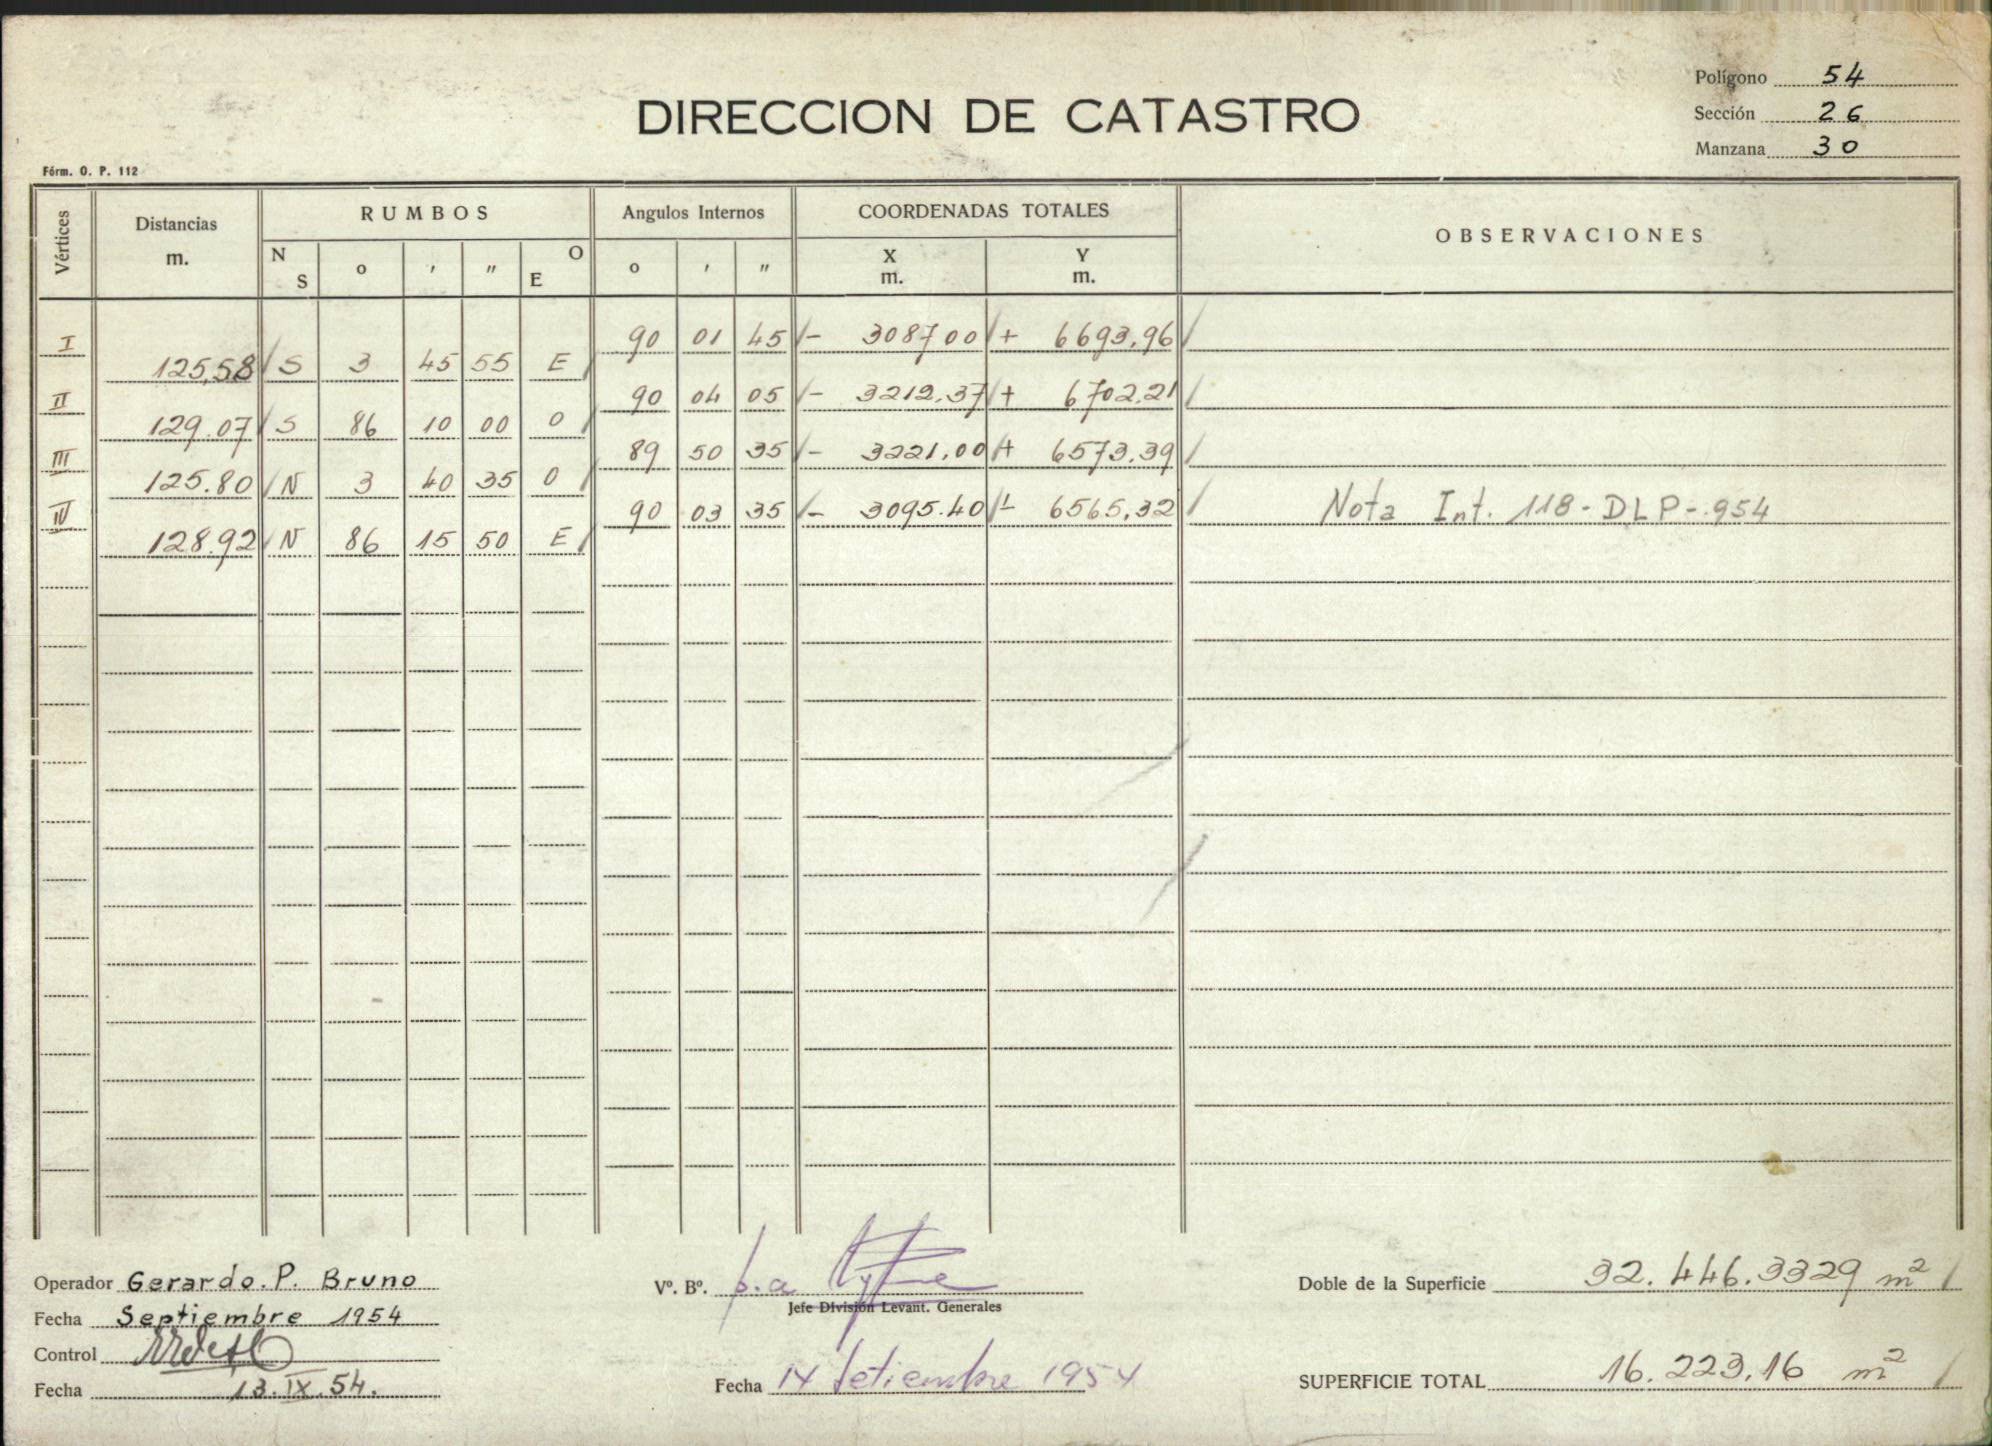 Polígono 54
DIRECCION DE CATASTRO
Sección 26
Manzana 30
Fórm. O. P. 112
Vértices Distancias m. RUMBOS Angulos Internos COORDENADAS TOTALES OBSERVACIONES
N S o ' " O E o ' " X m. Y m.
I 90 01 45 - 3087 00 + 6693,96
125,58 S 3 45 55 E
II 90 04 05 - 3212,37 + 6702,21
129.07 S 86 10 00 O
III 89 50 35 - 3221,00 + 6573,39
125.80 N 3 40 35 O
IV 90 03 35 - 3095.40 + 6565,32 Nota Int. 118-DLP-.954
128.92 N 86 15 50 E
Operador Gerardo. P. Bruno
Vº. Bº. p.a
Doble de la Superficie 32.446.3329 m²
Jefe División Levant. Generales
Fecha Septiembre 1954
Control
Fecha 13.IX.54.
Fecha 14 Setiembre 1954
SUPERFICIE TOTAL 16.223,16 m²